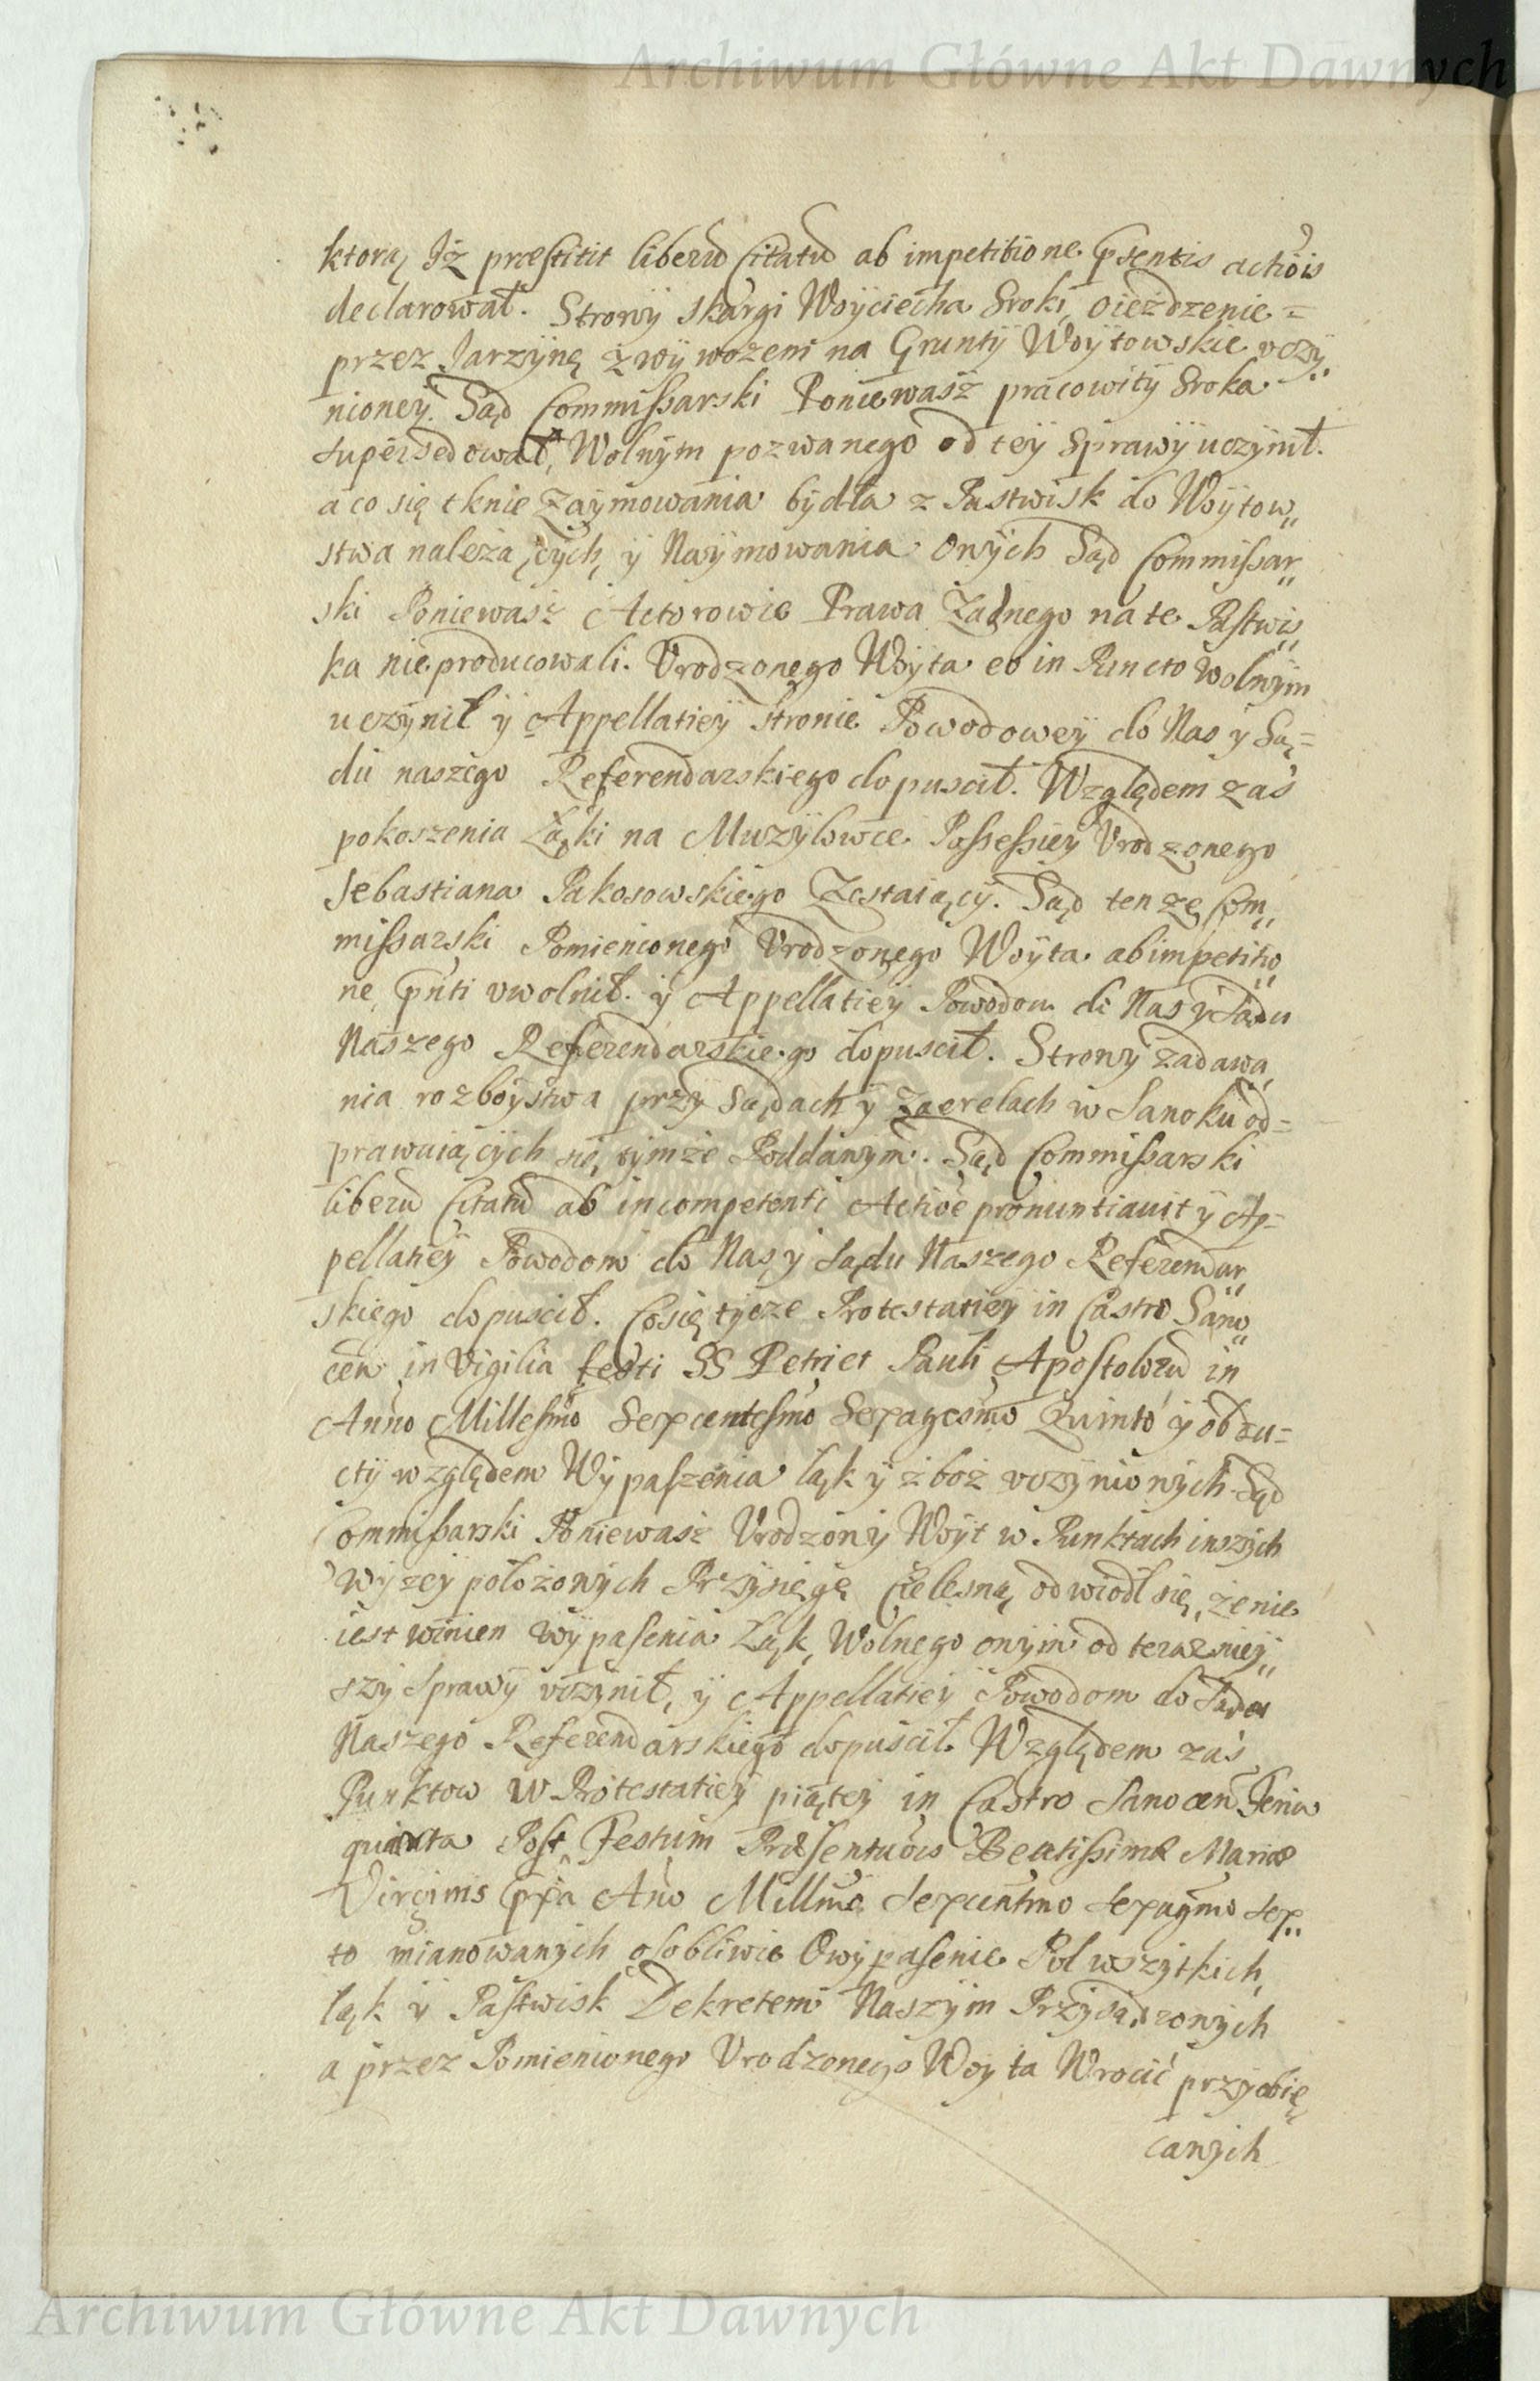 Archiwum Główne Akt Dawnych
ktorą Iż præstitit liberũ Citatũ ab impetitione p̃sentis actiõis
declarował. Strony skargi Woyciecha Sroki, oieżdzenie =
przez Jarzynę z wywozem na Grunty Woytowskie vczy„
nioney. Sąd Commissarski Poniewasz pracowity Sroka
supersedował, Wolnym pozwanego od tey sprawy uczynił.
a co się tknie Zaymowania bydła z Pastwisk do Woytow„
stwa należących, y Naymowania onych Sąd Commissar„
ski Poniewasz Actorowie Prawa Zadnego na te Pastwis„
ka nie producowali. Vrodzonego Woyta eo in Puncto wolnym
uczynił y Appellatiey stronie Powodowey do Nas y Są=
du naszego Referendarskiego dopuscił. Względem zaś
pokoszenia Łąki na Muzyłowce Possessiey Vrodzonego
Sebastiana Pakosowskiego Zostaiący. Sąd tenże Com„
missarski Pomienionego Vrodzonego Woyta ab impetitio„
ne p̃nti vwolnił. y Appellatiey Powodom do Nas y Sądu
Naszego Referendarskiego dopuscił. Strony zadawa„
nia rozboystwa przy Sądach y Zaerelach w Sanoku od=
prawuiących się tymże Poddanym. Sąd Commissarski
liberũ Citatũ ab incompetenti Actiõe pronuntiavit y Ap=
pellatiey Powodom do Nas y Sądu Naszego Referendar„
skiego dopuscił. Co się tycze Protestatiey in Castro Sano„
cen in Vigilia festi SS Petri et Pauli Apostolorũ in
Anno Millesmo Sexcentesmo Sexagesmo Quinto y obdu=
cty względem Wypaszenia łąk y zboż vczynionych. Sąd
Commissarski Poniewasz Vrodzony Woyt w Punktach inszych
wyzey położonych Przysięgą Cielesną odwiodł się, że nie
iest winien wypasenia Łąk, Wolnego onym od teraźniey„
szy sprawy vczynił, y Appellatiey Powodom do Sądu
Naszego Referendarskiego dopuscił. Względem zaś
Punktow w Protestatiey piątey in Castro Sanocen Feria
quarta Post Festum Præsentaõis Beatissimæ Mariæ
Virginis p̃xa Año Millmo Sexcentmo Sexagmo Sex„
to mianowanych osobliwie O wypasenie Pol wszytkich,
łąk y Pastwisk Dekretem Naszym Przysądzonych
a przez Pomienionego Vrodzonego Woyta Wrocić przyobie„
canych
Archiwum Główne Akt Dawnych